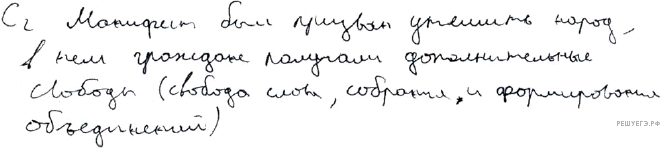 C2 Манифест был призван утешить народ,
в нем граждане получали дополнительные
свободы (свобода слова, собрания, и формирования
объединений)
РЕШУЕГЭ.РФ